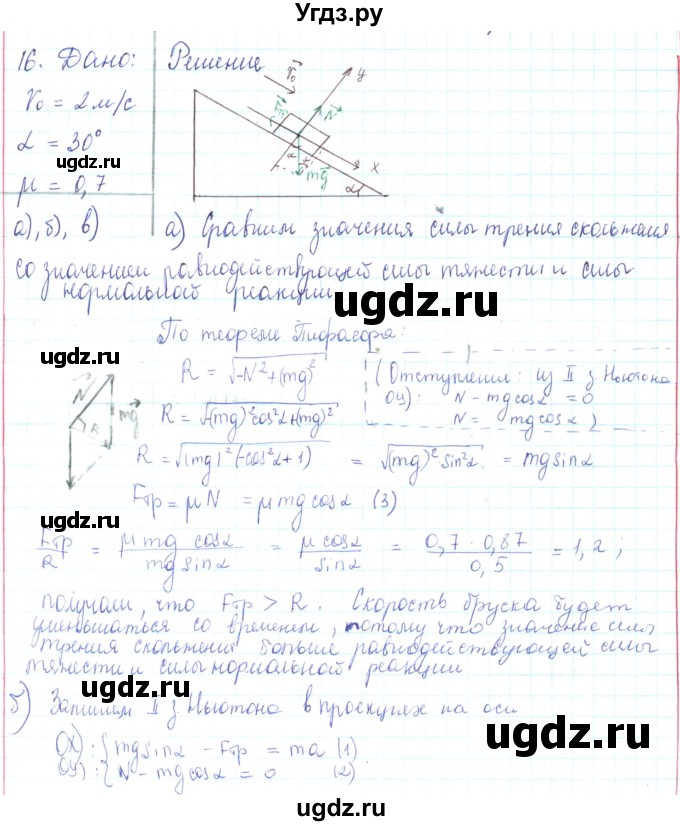 Угдз.ру
16. Дано:
Решение
V₀ = 2 м/с
α = 30°
μ = 0,7
а), б), в)
V₀
y
Fтр
N
x
mg
α
α
угдз.ру
ugdz.ru
а) Сравним значения силы трения скольжения
со значением равнодействующей силы тяжести и силы
нормальной реакции
ugdz.ru
По теореме Пифагора:
ugdz.ru
R = √-N² + (mg)²
(Отступление: из II з Ньютона
OY): N - mg cosα = 0
N = mg cosα)
R = √-(mg)² cos²α + (mg)²
N
mg
R
R = √(mg)² (-cos²α + 1) = √(mg)² sin²α = mg sinα
Fтр = μN = μmg cosα (3)
Fтр/R = μmg cosα/mg sinα = μcosα/sinα = 0,7 · 0,87/0,5 = 1,2;
получаем, что Fтр > R. Скорость бруска будет
уменьшаться со временем, потому что значение силы
трения скольжения больше равнодействующей силы
тяжести и силы нормальной реакции
ugdz.ru
б) Запишем II з Ньютона в проекциях на оси
OX): { mg sinα - Fтр = ma (1)
OY): { N - mg cosα = 0 (2)
ugdz.ru
ugdz.ru